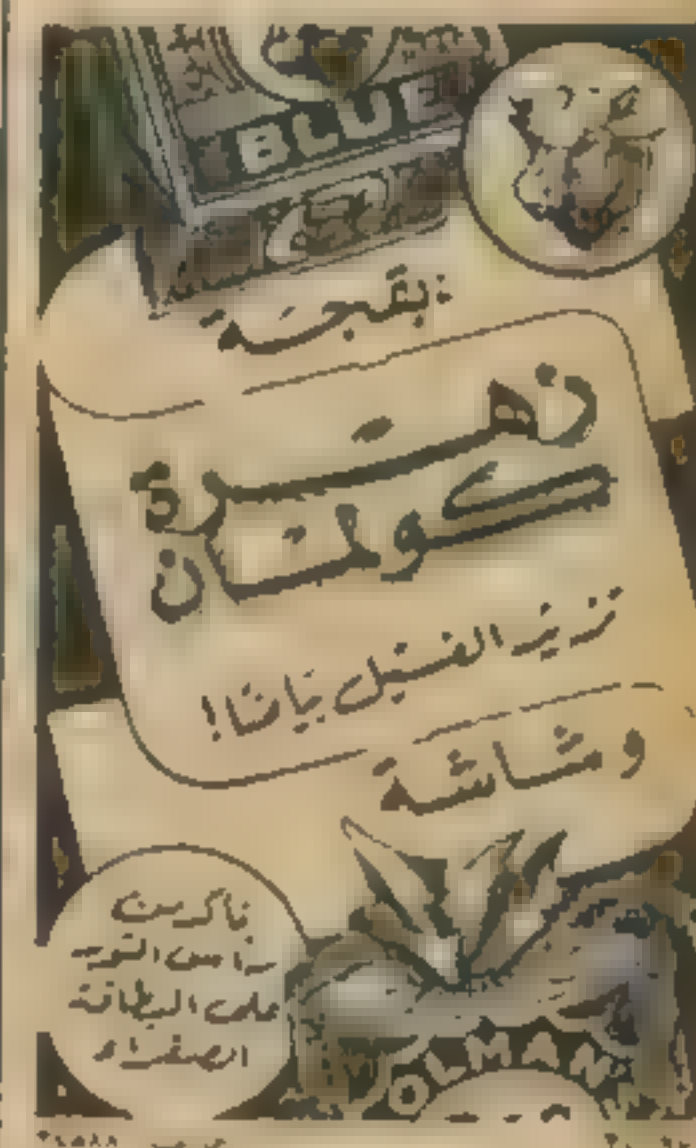 BLUE
بقجة
زهرة
كولمان
تزيد الغسيل بياضا!
وشاشة
تأكد من
رأس الثور
على البطاقة
الصفراء
COLMAN